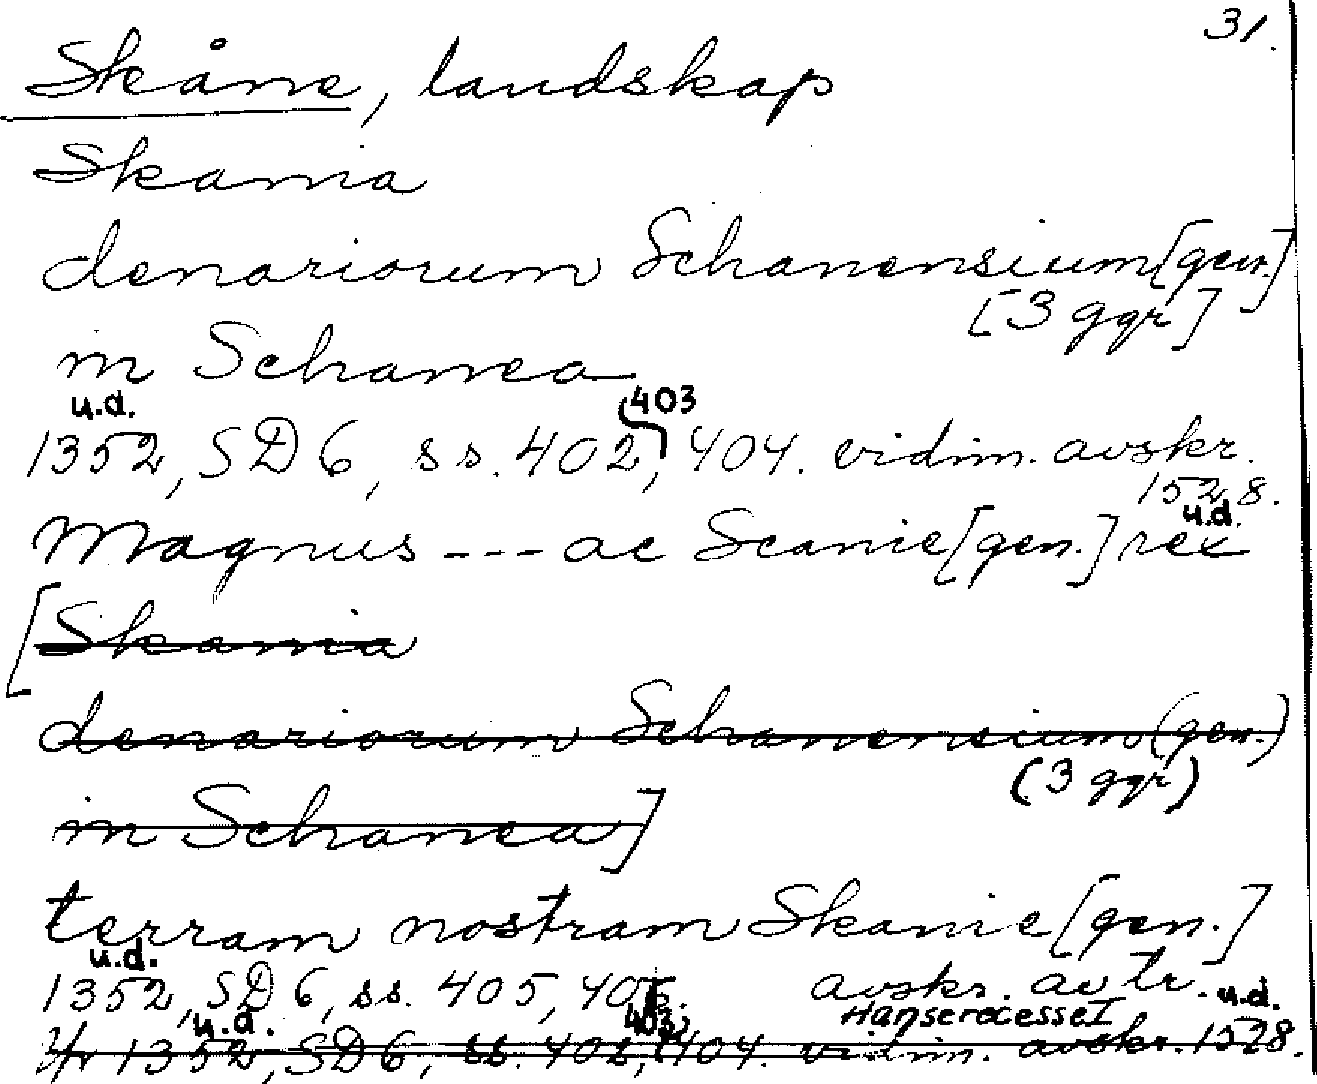 31.
Skåne, landskap
Skania
denariorum Schanensium [gen.]
[3 ggr]
in Schanea
u.d. 403
1352, SD 6, ss. 402, 404. vidim. avskr.
1528.
u.d.
Magnus --- ac Scanie [gen.] rex
[Skania
denariorum Schanensium (gen.)
(3 ggr)
in Schanea]
terram nostram Skanie [gen.]
u.d.
1352, SD 6, ss. 405, avskr. av tr. u.d.
u.d. 403, Hanserecesse I
1352, SD 6, ss. 402, 404. vidim. avskr. 1528.